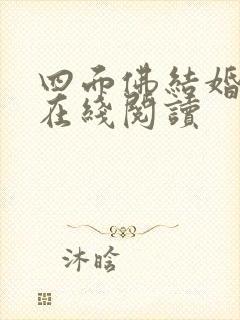 四而佛結婚
在綫閱讀
沐晗